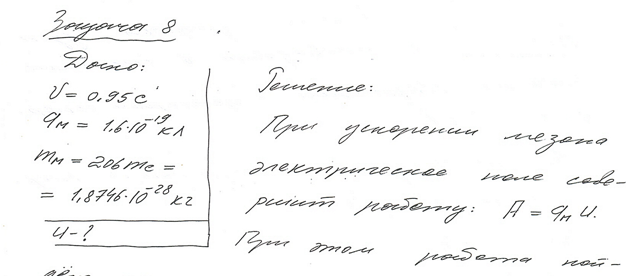 Задача 8
Дано:
υ = 0,95 c
qм = 1,6·10⁻¹⁹ кл
mм = 206me =
= 1,8746·10⁻²⁸ кг
U - ?
Решение:
При ускорении мезона
электрическое поле совер-
ршит работу: A = qм U.
При этом работа пой-